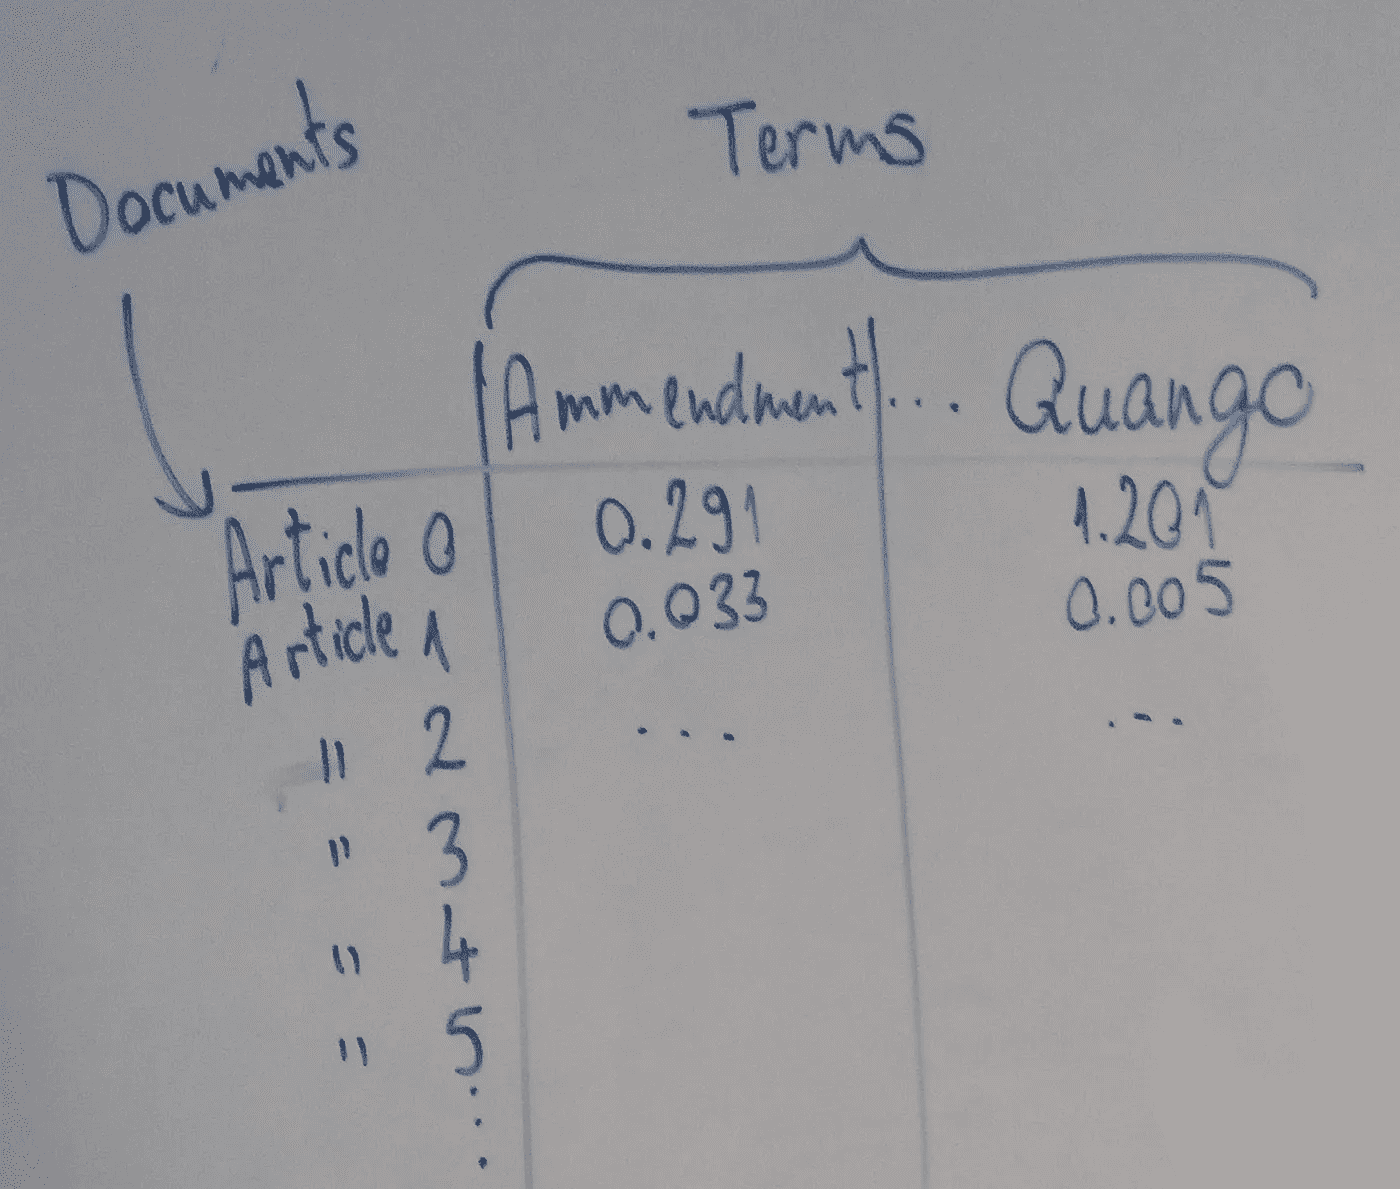 Documents
Terms
Ammendment ... Quango
Article 0 0.291 1.201
Article 1 0.033 0.005
" 2 ... ...
" 3
" 4
" 5
...